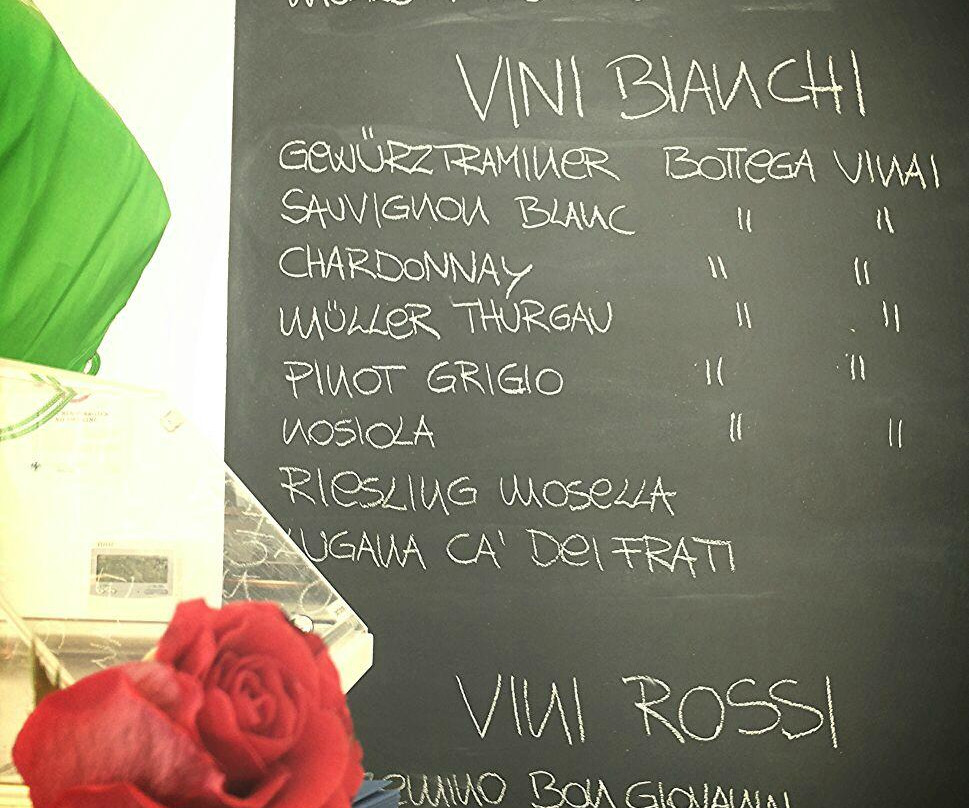 VINI BIANCHI
GEWÜRZTRAMINER BOTTEGA VINAI
SAUVIGNON BLANC " "
CHARDONNAY " "
MÜLLER THURGAU " "
PINOT GRIGIO " "
NOSIOLA " "
RIESLING MOSELLA
LUGANA CA' DEI FRATI
VINI ROSSI
BON GIOVANNI